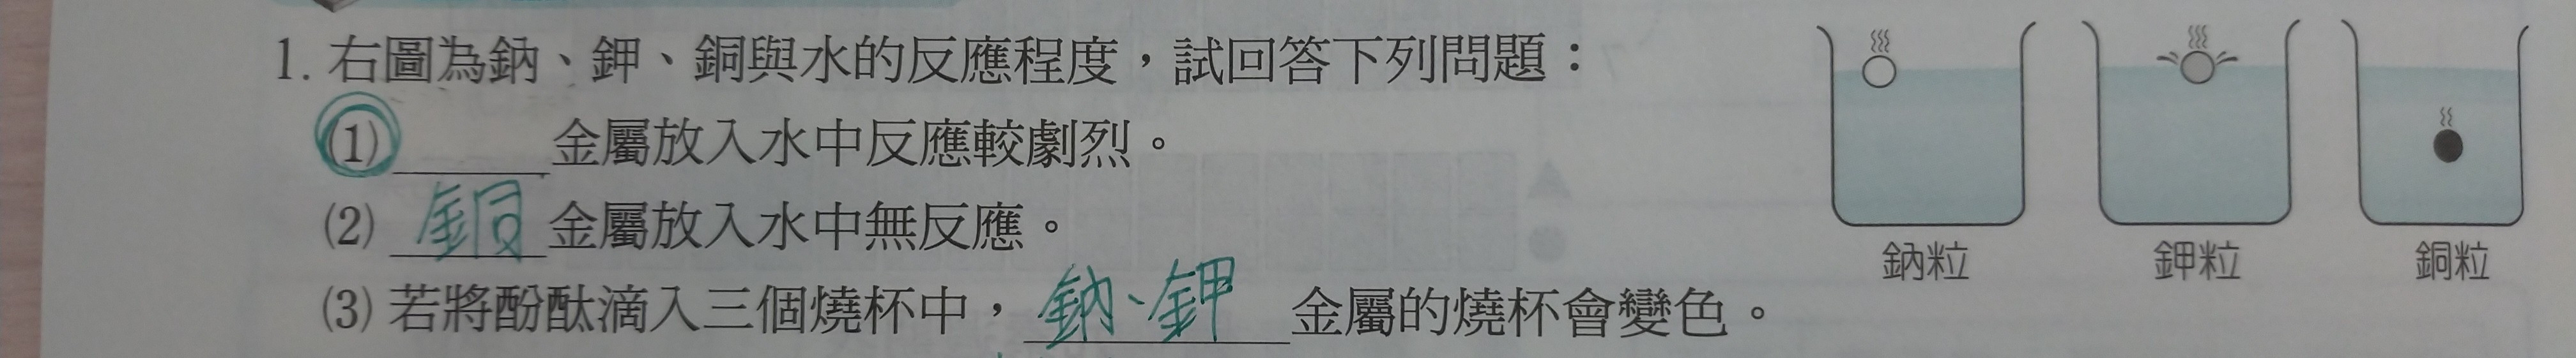 1. 右圖為鈉、鉀、銅與水的反應程度，試回答下列問題：
(1) ______金屬放入水中反應較劇烈。
(2) 銅金屬放入水中無反應。
(3) 若將酚酞滴入三個燒杯中，鈉、鉀金屬的燒杯會變色。
鈉粒 鉀粒 銅粒